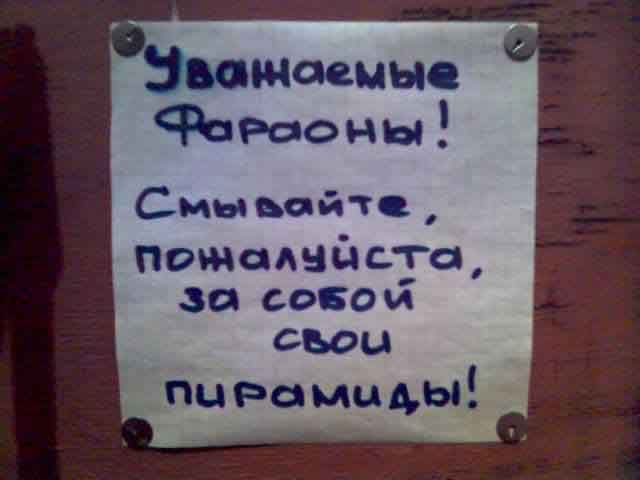 Уважаемые
Фараоны!
Смывайте,
пожалуйста,
за собой
свои
пирамиды!